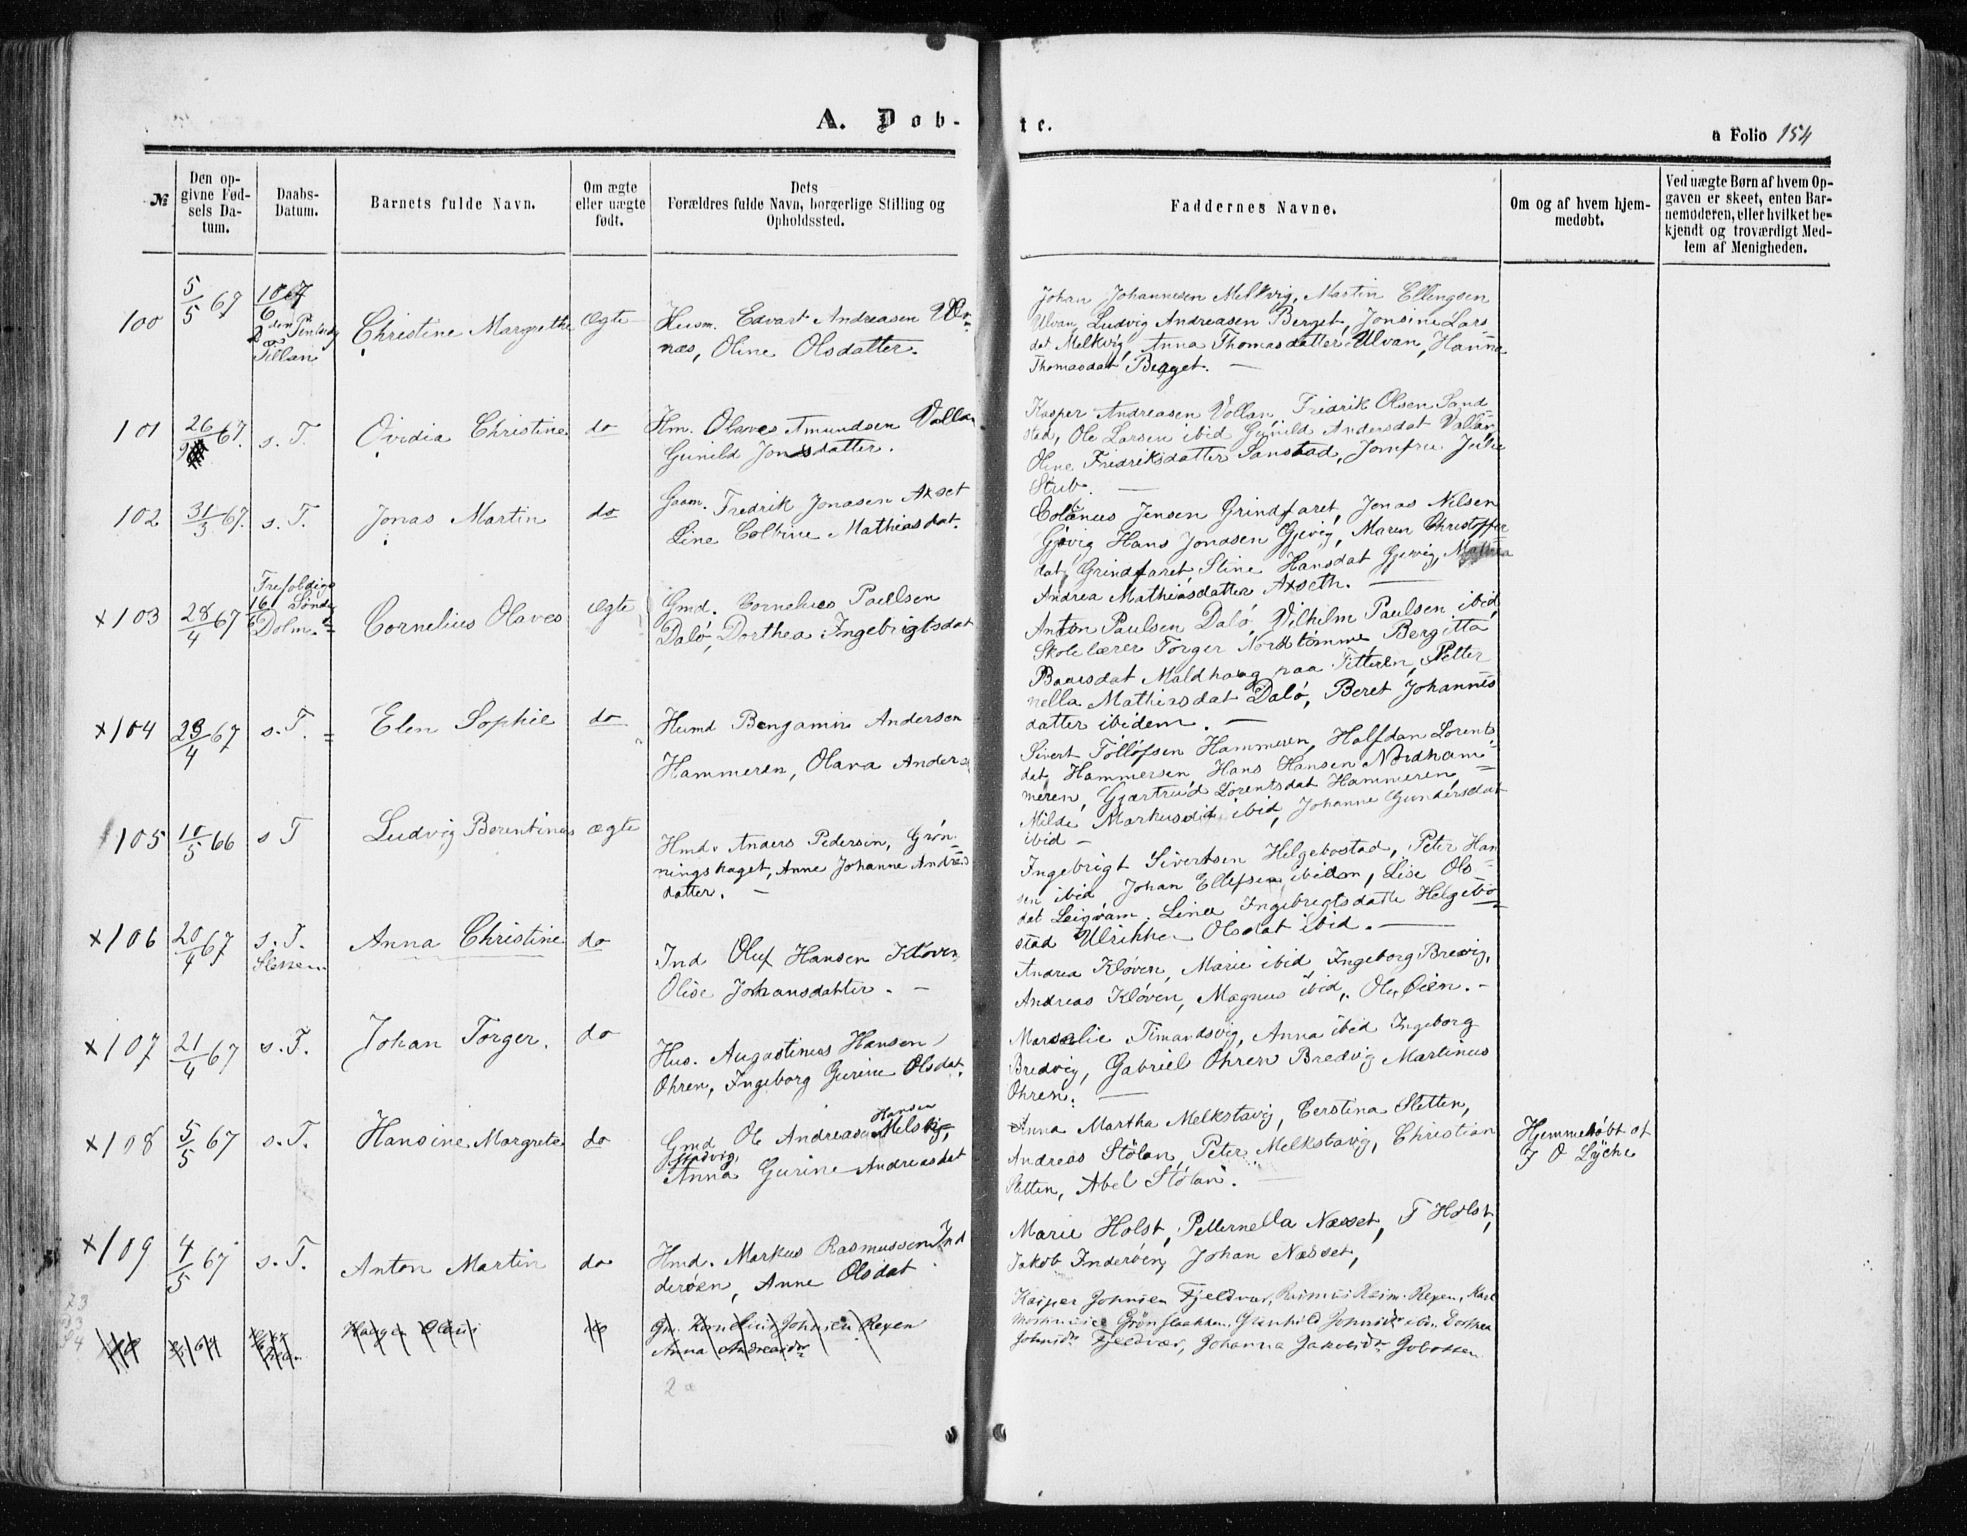 A. Døb-
te.
a Folio 154
№
Den op-
givne Fød-
sels Da-
tum.
Daabs-
Datum.
Barnets fulde Navn.
Om ægte
eller uægte
født.
Dets
Forældres fulde Navn, borgerlige Stilling og
Opholdssted.
Faddernes Navne.
Om og af hvem hjem-
medøbt.
Ved uægte Børn af hvem Op-
gaven er skeet, enten Bar-
nemoderen, eller hvilket be-
kjendt og troværdigt Med-
lem af Menigheden.
100
5/5 67
2den
Fillan
Christine Margrethe
Ægte
Husm. Edvart Andreasen
næs, Oline Olsdatter.
Johan Johannesen Melkvig, Martin Ellingsen
Ulvan, Ludvig Andreasen Berget, Jonsine Lars-
dat Melkvig, Anna Thomasdatter Ulvan, Hanna
Thomasdat Berget. —
101
26/ 67.
s. T.
Ovidia Christine
do
Hm. Olaves Amundsen Vollan
Gunild Jonsdatter.
Kasper Andreasen Vollan, Fridrik Olsen Sand-
sted, Ole Larsen ibid Gunild Andersdat Vollan,
Oline Fredriksdatter Sanstad, Jomfru Julie
Stub. —
102
31/3 67.
s. T.
Jonas Martin
do
Gaam. Fredrik Jonasen Axset
Line Colbine Mathiasdat.
Jensen Grindfaret, Jonas Nilsen
Gjøvig Hans Jonasen Gjevig, Maren Christoffer
dat, Grindfaret, Stine Hansdat Gjervig, Mathea
Andrea Mathiasdatter Axseth. —
x 103
28/4 67
Trefoldigs
16 Sønd
Dolm
Cornelius Olaves
Ægte
Gmd. Cornelius Paulsen
Dalø, Dorthea Ingebrigtsdat
Anton Paulsen Dalø, Vilhelm Paulsen ibid,
Skolelærer Torger Nordtømme Bergitta
Baarsdat Maldhaug paa Titteren, Petter
nella Mathiasdat Dalø, Beret Johannes
datter ibidem. —
x 104
23/4 67
s. T.
Elen Sophie
do
Husmd Benjamin Andersen
Hammeren, Olava Anders
Sivert Tølløfsen Hammeren, Halfdan Lorents
dat, Hammersen, Hans Hansen Nordham-
meren, Gjærtrud Lorentsdat Hammeren,
Milde Markusdt ibid, Johanne Gundersdat
ibid —
105
10/5 66
s T
Ludvig Berentinus
ægte
Hmd. Anders Pedersen, Grøn-
ningshaget, Anne Johanne Andreas
datter. —
Ingebrigt Sivertsen Helgebostad, Peter Han-
sen ibid, Johan Ellefsen ibidem, Lise Ols-
dat Leiqvam, Line Ingebrigtsdatte Helgebo
stad Ulrikke Olsdat ibid. —
x 106
20/4 67
s. T.
Slessen
Anna Christine
do
Ind Oluf Hansen Kløven
Olise Johansdatter. —
Andrea Kløven, Marie ibid Ingeborg Bredvig,
Andreas Kløven, Magnus ibid, Ole Øien. —
x 107
21/4 67
s. T.
Johan Torger.
do
Hus. Augustinus Hansen
Ohren, Ingeborg Gurine Olsdat.
Marselie Timandsvig, Anna ibid Ingeborg
Bredvig, Gabriel Ohren Bredvig Martinus
Ohren. —
x 108
5/5 67
s. T.
Hansine Margrete
do
Hansen
Gmd Ole Andreas
Anna Gurine Andreasdat
Anna Martha Melkstavig, Cerstina Sletten,
Andreas Stølan, Peter Melkstavig, Christian
Sletten, Abel Stølan.
Hjemmedøbt af
J O Lyche
x 109
4/5 67
s. T.
Anton Martin
do
Hmd. Markus Rasmussen Ind
derøen, Anne Olsdat
Marie Holst, Petternella Næsset, T Holst,
Jakob Inderøen, Johan Næsset,
Haagen Olaus
do
Gm. Kornelius Johnsen Rexen
Anna Andreasdtr
Kasper Johnsen Fjeldvær, Rasmus Rexen, Karl
Grønflaekken, Gunhild Johnsdtr ibid. Dorthea
Johnsdtr Fjeldvær, Johanna Jakobsdtr